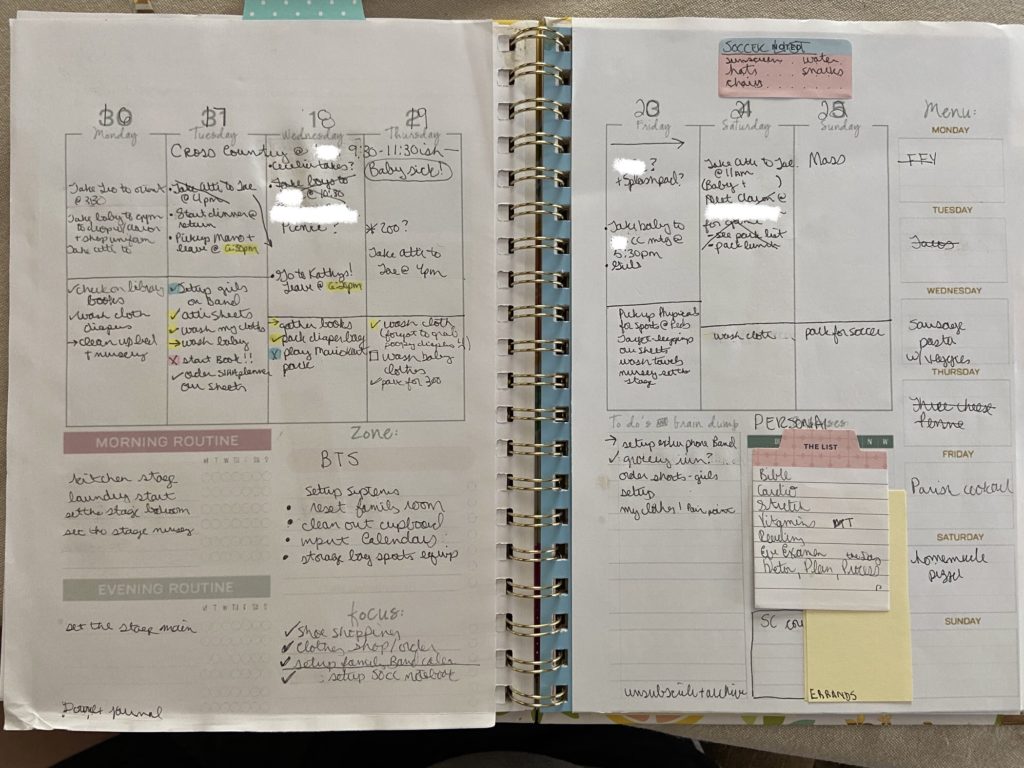 Monday
Take Leo to orient
@ 3:30
Take baby to
to dropoff
+ shop uniform
Take atti to
✓ check on library
books
✓ wash cloth
diapers
→ clean up bed
+ nursery
Tuesday
Cross Country @ 9:30-11:30ish
• Take atti to Jae
@ 4pm
• Start dinner @
return
• Pickup Mano +
leave @ 6:30pm
✓ Setup girls
on Band
✓ atti sheets
✓ wash my clothes
→ wash baby
X start Book!!
✓ order planner
our sheets
18
Wednesday
• Cecilia takes?
• Take boys to
@ 10:30
Picnic?
• Go to Kathys!
leave @
→ gather books
✓ pack diaper bag
X play Mariokart
Thursday
Baby sick!
* zoo?
Take atti to
Jae @ 4pm
✓ wash cloth
(forgot to grab
poopy diapers
☐ wash baby
clothes
✓ pack for zoo
MORNING ROUTINE
M T W T F S S
kitchen stage
laundry start
set the stage bedroom
set the stage nursery
EVENING ROUTINE
M T W T F S S
set the stage main
journal
Zone:
BTS
Setup Systems
• reset family room
• clean out cupboard
• input Calendars
• storage bag sports equip
focus:
✓ Shoe shopping
✓ Clothes shop/order
✓ setup family Band
✓ setup notebook
SOCCER NOTES
sunscreen water
hats snacks
chairs
Friday
?
+ Splashpad?
Take baby to
cc mtg @
5:30pm
• Girls
Pickup Physical
for sports @ Peds
Target
our sheets
wash towels
nursery set the
stage
Saturday
Take atti to Jae
@ 11am
(Baby + )
@
for
- see pack list
- pack lunch
wash cloth
Sunday
Mass
pack for soccer
To do's and brain dump
→ setup phone Band
✓ grocery run?
order shorts - girls
setup
my clothes!
unsubscribe + archive
PERSONAL
THE LIST
Bible
Cardio
Stretch
Vitamins
Reading
Eve Examen
Detox, Plan, Process
SC
ERRANDS
Menu:
MONDAY
FFY
TUESDAY
Tacos
WEDNESDAY
Sausage
pasta
w/ veggies
THURSDAY
Three cheese
penne
FRIDAY
Parish cookout
SATURDAY
homemade
pizza
SUNDAY